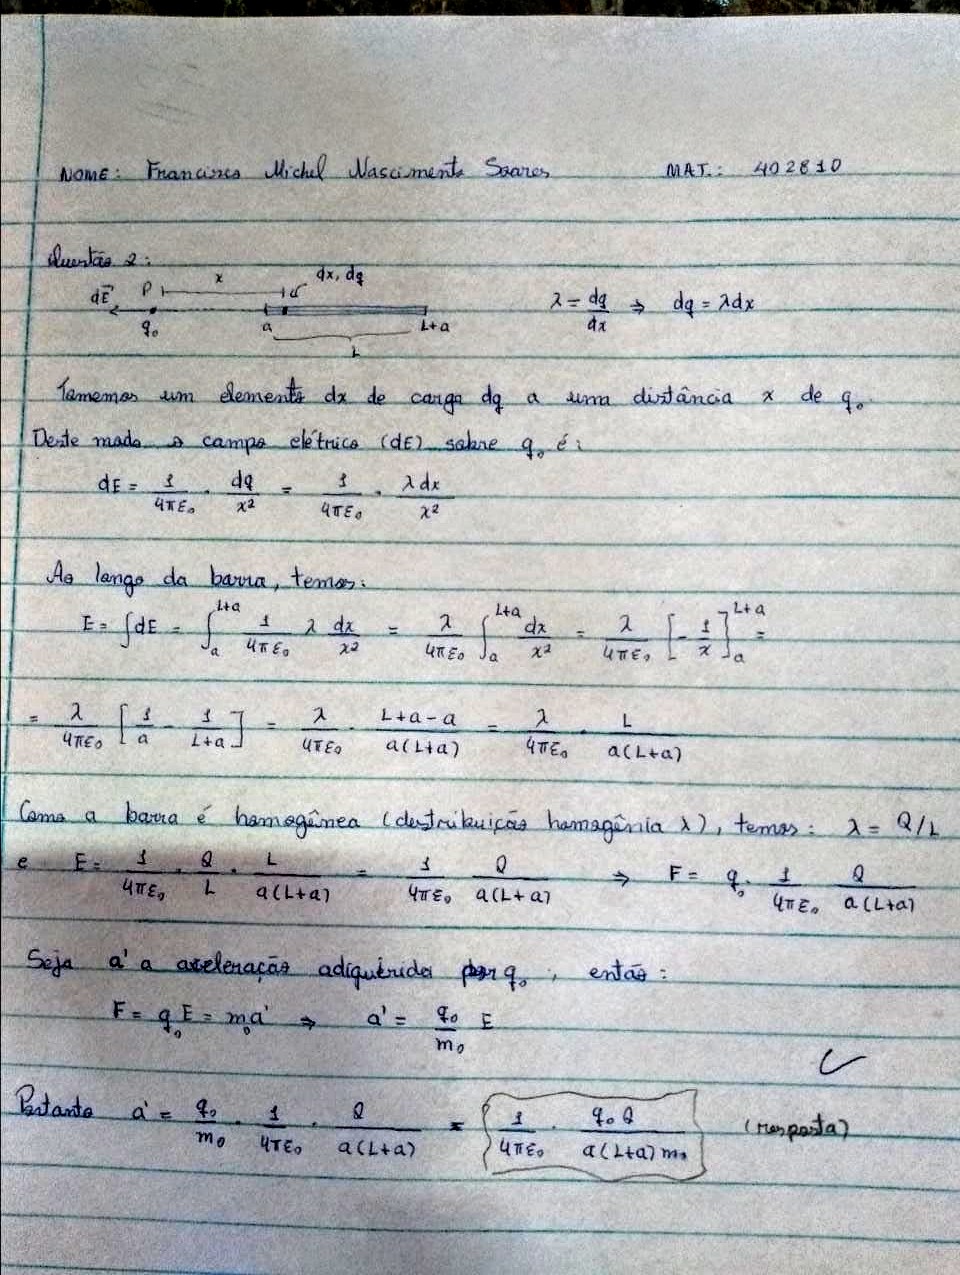 NOME: Francisco Michel Nascimento Soares MAT.: 402810
Questão 2:
x dx, dq
dE⃗ P
λ = dq/dx ⇒ dq = λdx
q₀ a L+a
L
Tomemos um elemento dx de carga dq a uma distância x de q₀.
Deste modo o campo elétrico (dE) sobre q₀ é:
dE = 1/4πε₀ · dq/x² = 1/4πε₀ · λdx/x²
Ao longo da barra, temos:
E = ∫dE = ∫ₐᴸ⁺ᵃ 1/4πε₀ λ dx/x² = λ/4πε₀ ∫ₐᴸ⁺ᵃ dx/x² = λ/4πε₀ [-1/x]ₐᴸ⁺ᵃ =
= λ/4πε₀ [1/a - 1/L+a] = λ/4πε₀ · L+a-a/a(L+a) = λ/4πε₀ · L/a(L+a)
Como a barra é homogênea (destribuição homogênia λ), temos: λ = Q/L
e E = 1/4πε₀ · Q/L · L/a(L+a) = 1/4πε₀ Q/a(L+a) ⇒ F = q₀ · 1/4πε₀ Q/a(L+a)
Seja a' a aceleração adiquirida por q₀, então:
F = q₀E = m₀a' ⇒ a' = q₀/m₀ E
Portanto a' = q₀/m₀ · 1/4πε₀ · Q/a(L+a) = 1/4πε₀ · q₀Q/a(L+a)m₀ (resposta)